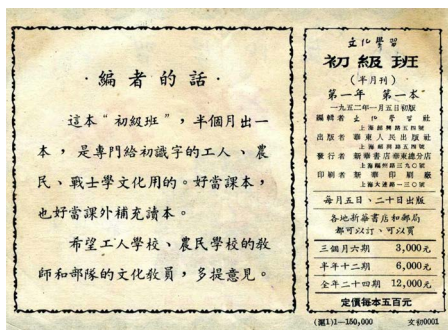 ·編者的話·
這本“初級班”，半個月出一
本，是專門給初識字的工人、農
民、戰士學文化用的。好當課本，
也好當課外補充讀本。
希望工人學校、農民學校的教
師和部隊的文化教員，多提意見。
文化學習
初級班
(半月刊)
第一年 第一本
一九五二年一月五日初版
編輯者 文化學習社
上海紹興路五四號
出版者 華東人民出版社
上海紹興路五四號
發行者 新華書店華東總分店
上海福州路三九〇號
印刷者 新華印刷廠
上海大連路一三〇號
每月五日、二十日出版
各地新華書店和郵局
都可以訂、可以買
三個月六期 3,000元
半年十二期 6,000元
全年二十四期 12,000元
定價每本五百元
(滬1)1—150,000 文初0001